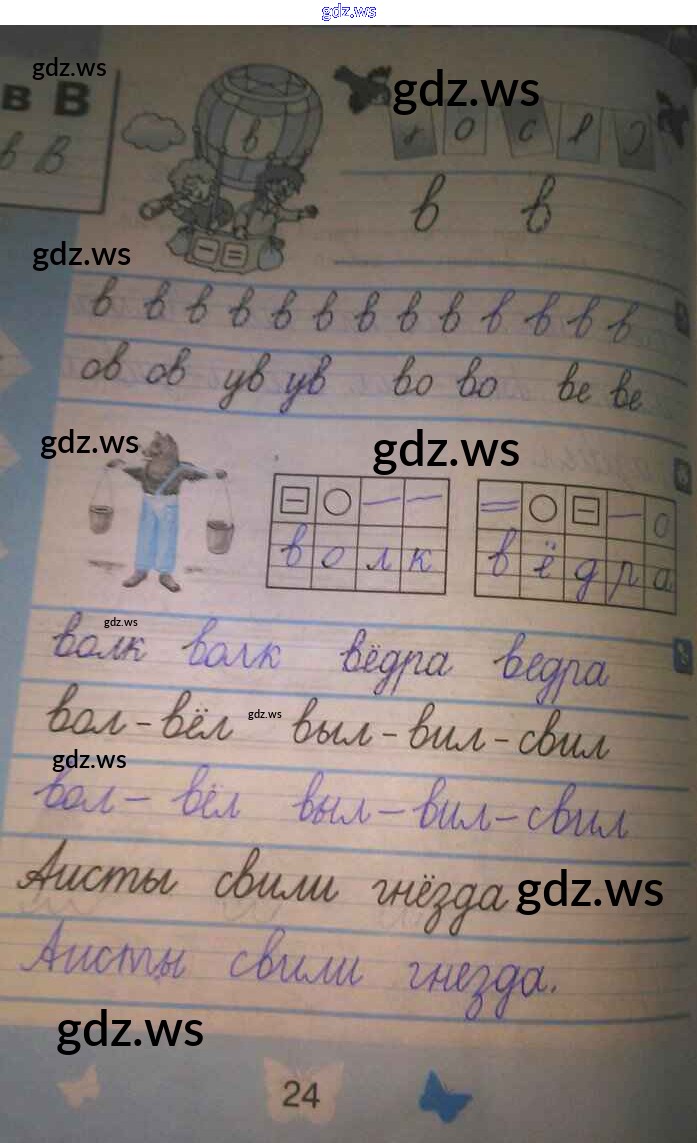 gdz.ws
gdz.ws
gdz.ws
в В
в В
в
в в
gdz.ws
в в в в в в в в в в в в в
ов ов ув ув во во ве ве
gdz.ws
gdz.ws
в о л к
в ё д р а
gdz.ws
волк волк вёдра ведра
вол – вёл gdz.ws выл – вил – свил
gdz.ws
вол – вёл выл – вил – свил
Аисты свили гнёзда gdz.ws
Аисты свили гнезда.
gdz.ws
24